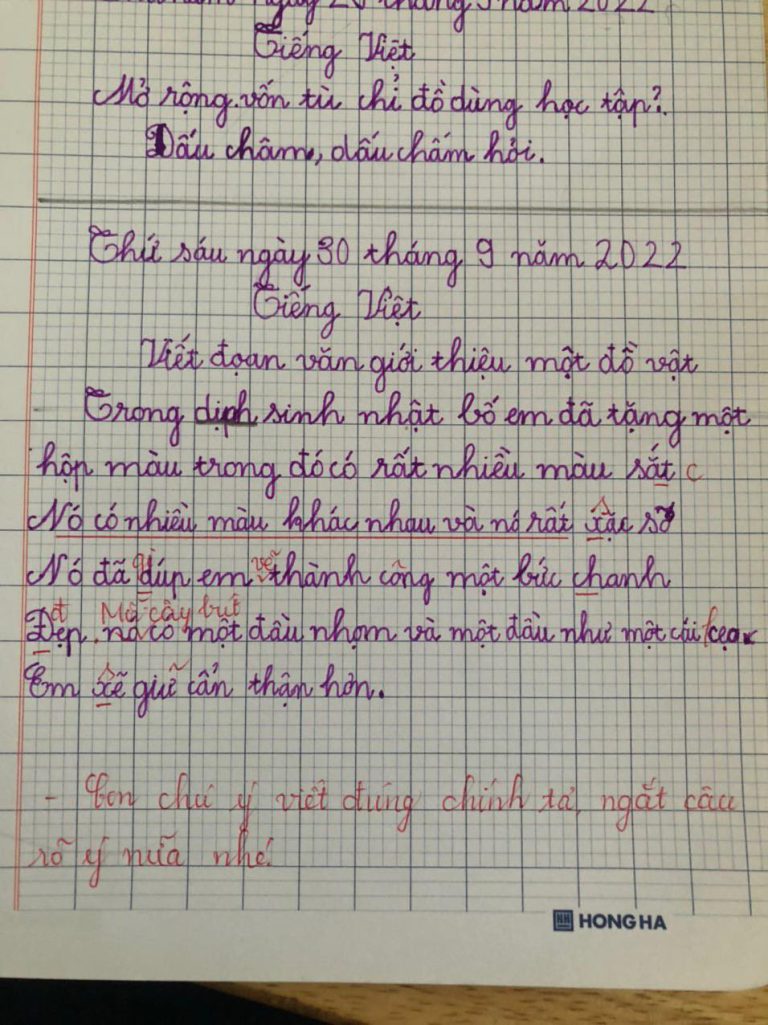 ngày 26 tháng 9 năm 2022
Tiếng Việt
Mở rộng vốn từ chỉ đồ dùng học tập?.
Dấu châm, dấu chấm hỏi.
Thứ sáu ngày 30 tháng 9 năm 2022
Tiếng Việt
Viết đoạn văn giới thiệu một đồ vật
Trong dịph sinh nhật bố em đã tặng một
hộp màu trong đó có rất nhiều màu sắt c
Nó có nhiều màu khác nhau và nó rất xặc sỡ
Nó đã dúp em vẽ thành công một bức chanh
Đẹp. nó có một đầu nhọn và một đầu như một cái
đ Một cây bút
Em xẽ giữ cẩn thận hơn.
- Con chú ý viết đúng chính tả, ngắt câu
rõ ý nữa nhé.
HONG HA